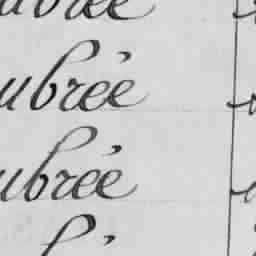 ubrée
ubrée
ubrée